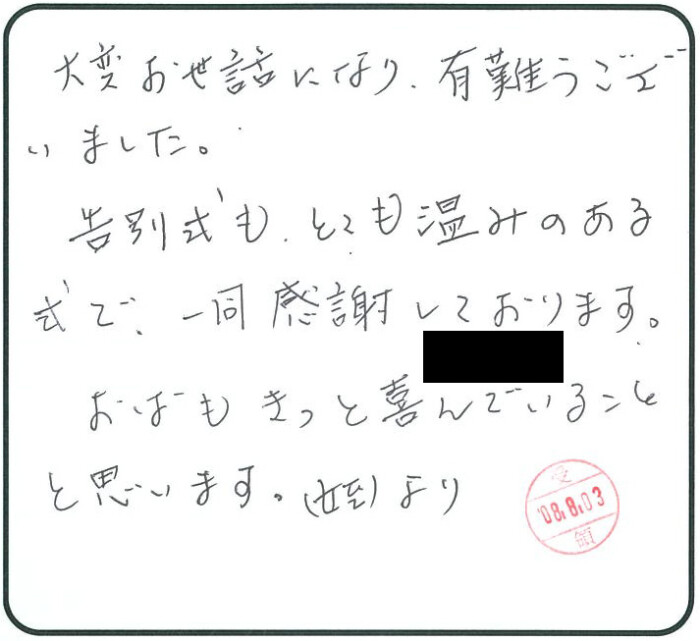 大変お世話になり、有難うござ
いました。
告別式も、とても温みのある
式で、一同感謝しております。
おばもきっと喜んでいること
と思います。(姪)より
受
'08.8.03
領